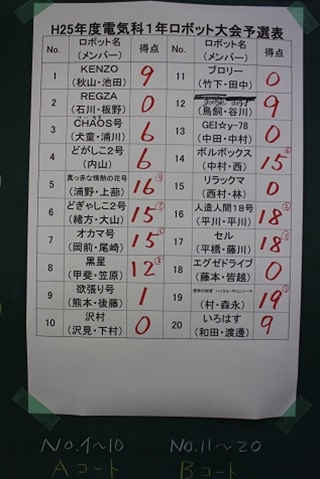 H25年度電気科1年ロボット大会予選表
No. ロボット名(メンバー) 得点 No. ロボット名(メンバー) 得点
1 KENZO (秋山・池田) 9 11 ブロリー (竹下・田中) 0
2 REGZA (石川・板野) 0 12 (鳥飼・谷川) 9
3 CHAOS号 (犬童・浦川) 6 13 GEI☆y-78 (中田・中村) 0
4 どがしこ2号 (内山) 6 14 ボルボックス (中村・西) 15
5 真っ赤な情熱の花号 (浦野・上蔀) 16 15 リラックマ (西村・林) 0
6 どぎゃしこ2号 (緒方・大山) 15 16 人造人間18号 (平川・平川) 18
7 オカマ号 (岡前・尾崎) 15 17 セル (平橋・藤川) 18
8 黒星 (甲斐・笠原) 12 18 エグゼドライブ (藤本・皆越) 0
9 欲張り号 (熊本・後藤) 1 19 (村・森永) 19
10 沢村 (沢見・下村) 0 20 いろはす (和田・渡邊) 9
No.1〜10 No.11〜20
Aコート Bコート